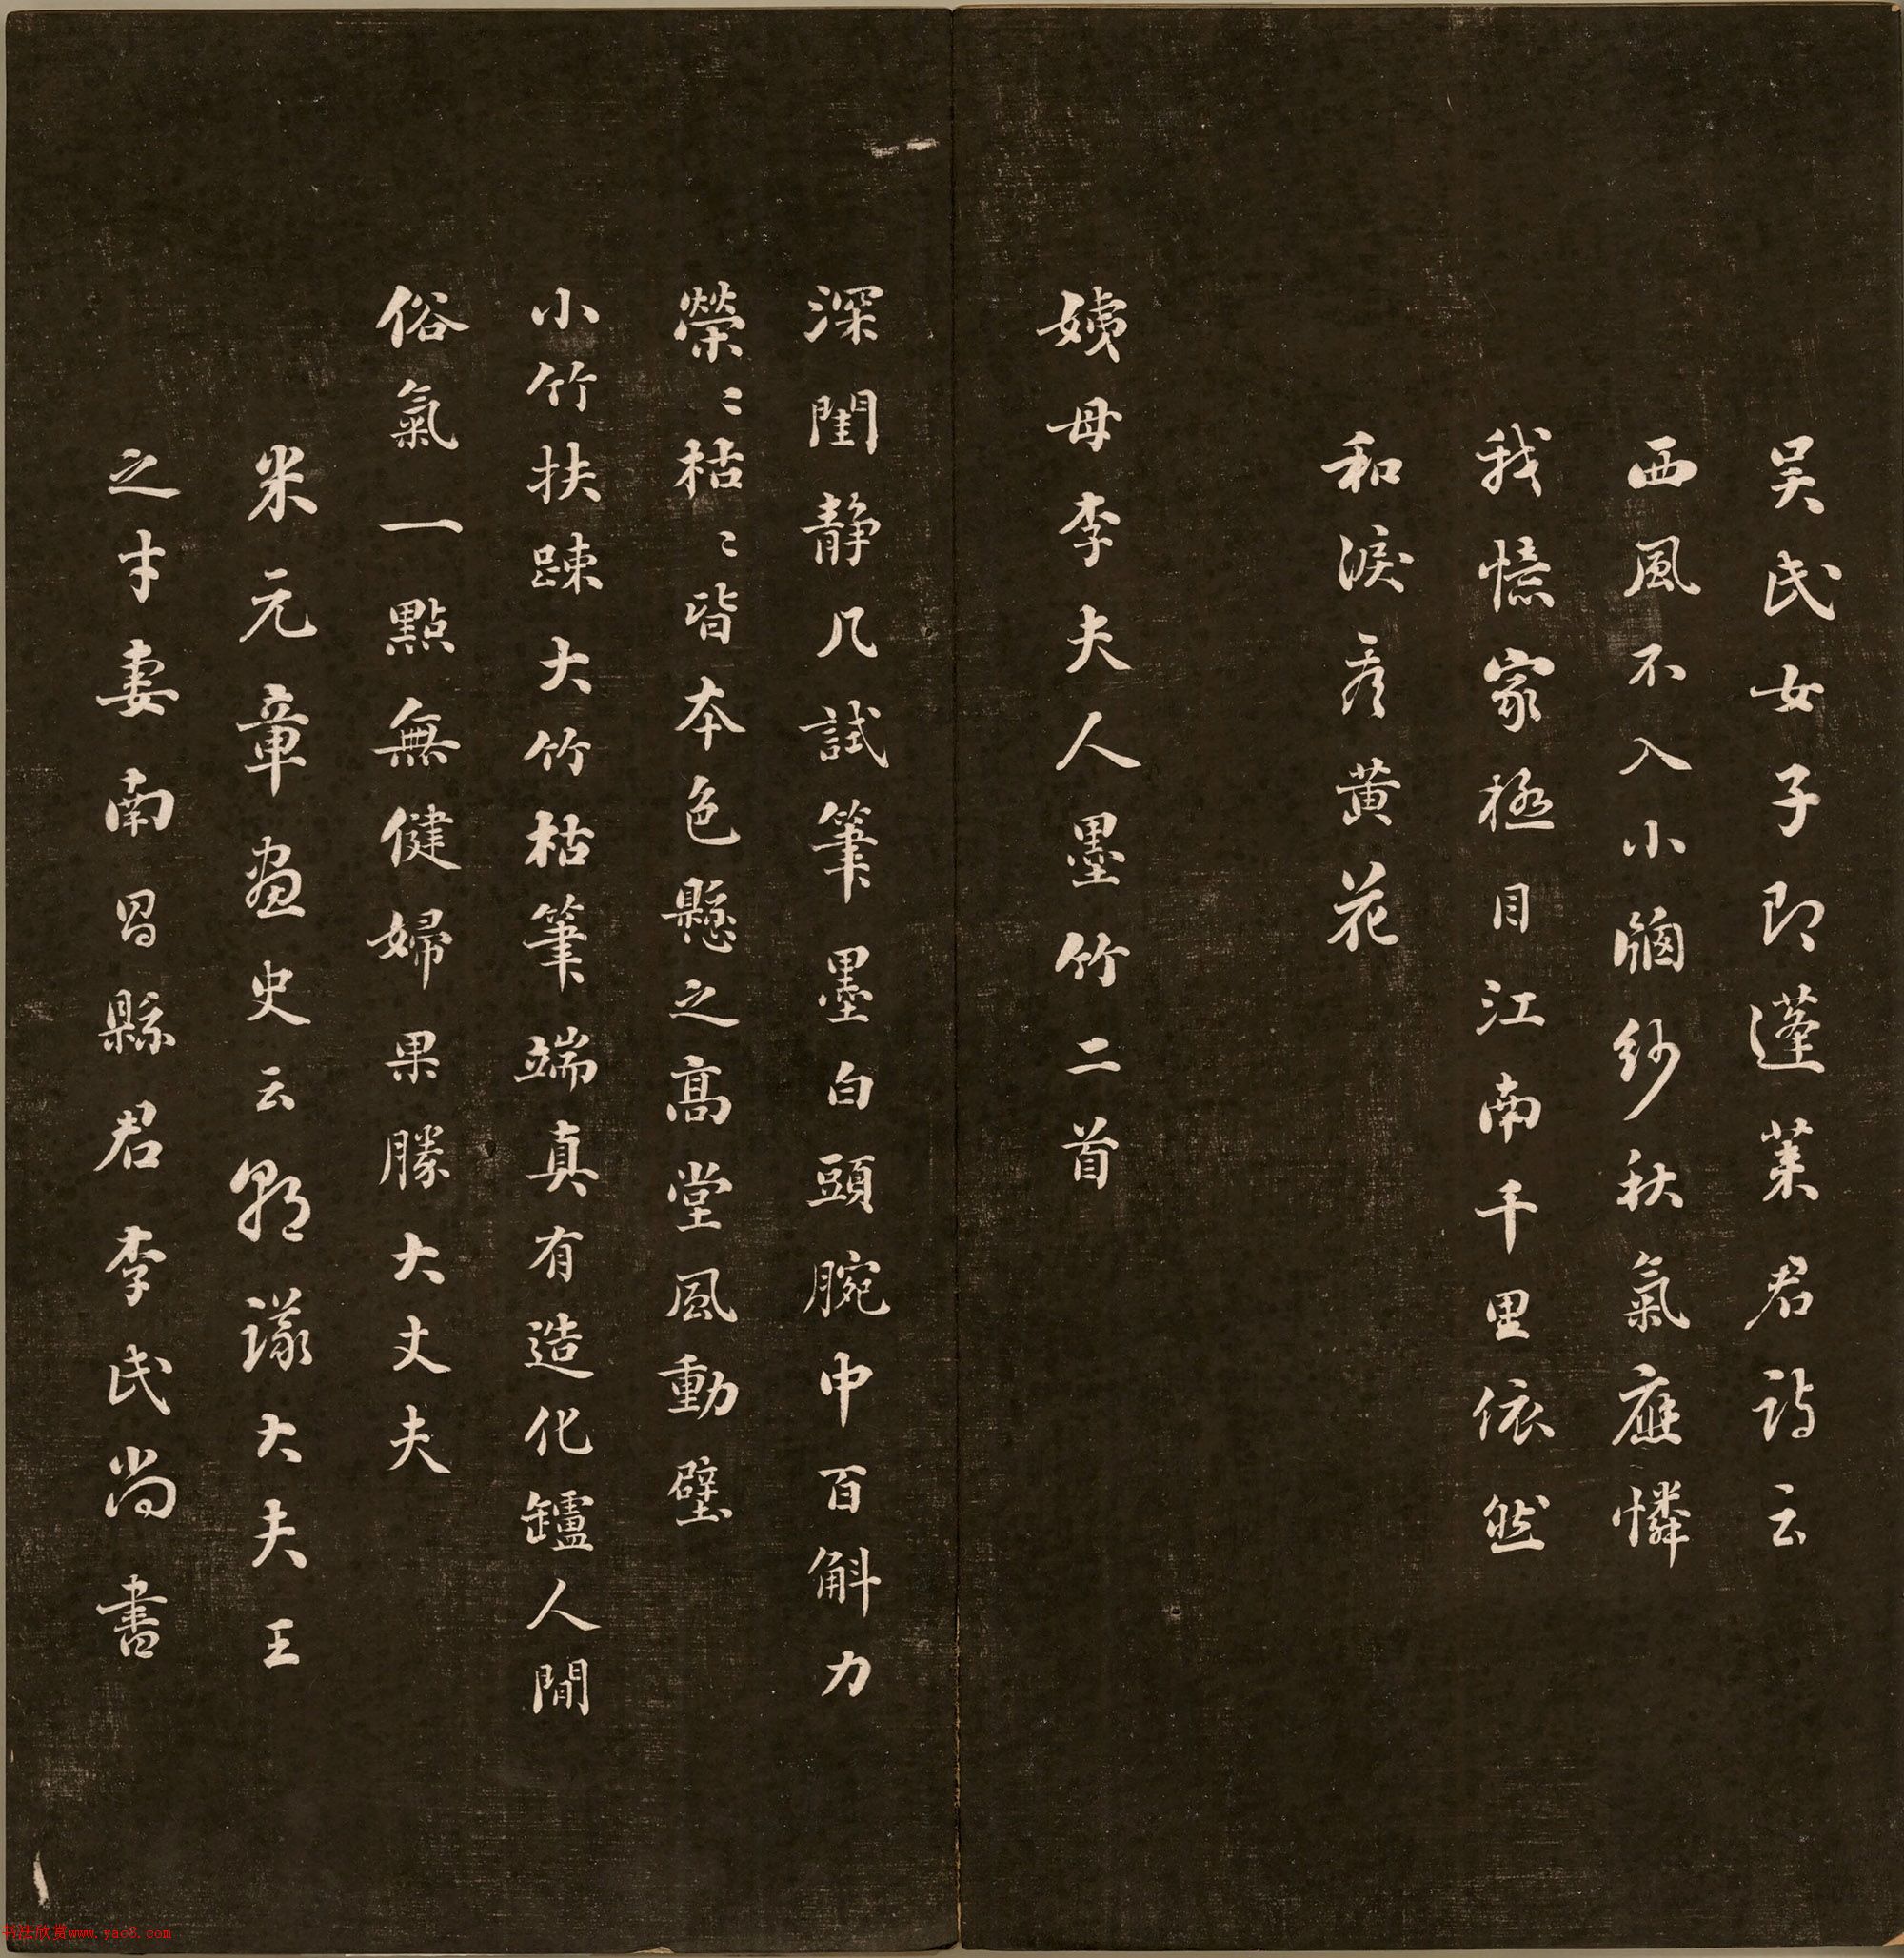 吴氏女子即蓬莱君詩云
西風不入小牕紗秋氣應憐
我憶家極目江南千里依然
和淚看黄花
姨母李夫人墨竹二首
深閨静几試筆墨白頭腕中百斛力
榮〻枯〻皆本色懸之髙堂風動壁
小竹扶踈大竹枯筆端真有造化鑪人間
俗氣一點無健婦果勝大丈夫
米元章畫史云朝議大夫王
之才妻南昌縣君李氏尚書
书法欣赏www.yac8.com